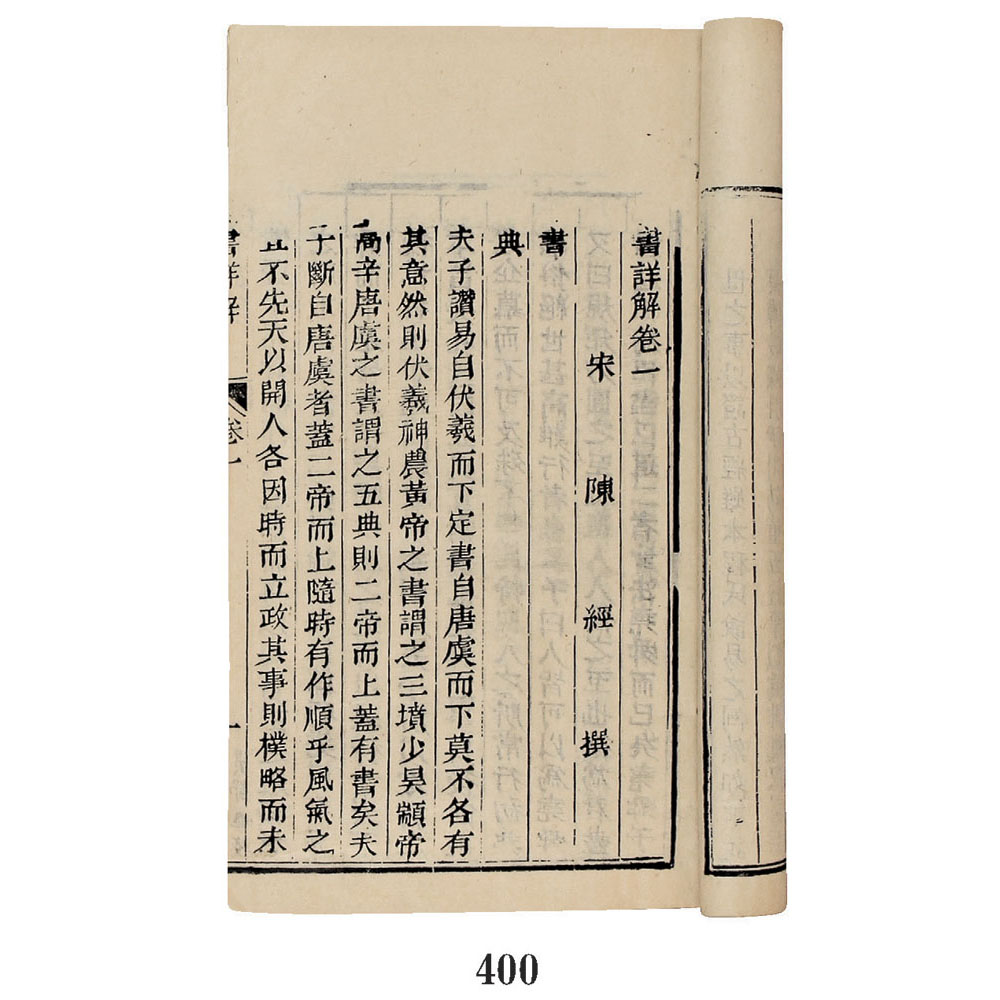 書詳解卷一
宋 陳 經 撰
書
典
夫子讚易自伏羲而下定書自唐虞而下莫不各有
其意然則伏羲神農黃帝之書謂之三墳少昊顓帝
高辛唐虞之書謂之五典則二帝而上蓋有書矣夫
子斷自唐虞者蓋二帝而上隨時有作順乎風氣之
且不先天以開人各因時而立政其事則樸略而未
書詳解 卷一 一
400